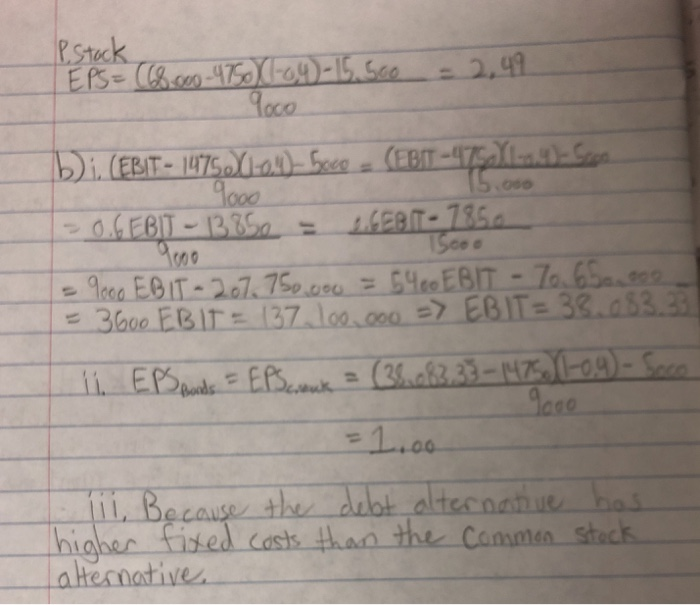 P. Stock
EPS = (68.000-4750)(1-0,4)-15.500 = 2,49
9000
b) i. (EBIT - 14750)(1-0.4) - 5000 = (EBIT - 4750)(1-0.4) - 5000
9000 15.000
= 0.6EBIT - 13850 = 0.6EBIT - 7850
9000 15000
= 9000 EBIT - 207.750.000 = 5400EBIT - 70.650.000
= 3600 EBIT = 137.100.000 => EBIT = 38.083.33
ii. EPS Bonds = EPS c.stock = (38.083.33 - 14750)(1-0.4) - 5000
9000
= 1.00
iii. Because the debt alternative has
higher fixed costs than the common stock
alternative.